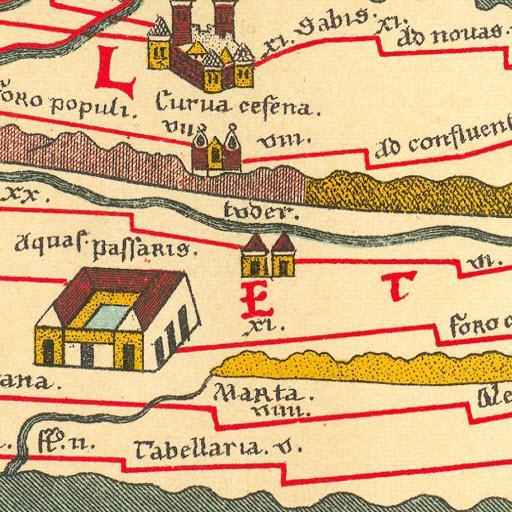 XI. Sabis. XI. Ad novas.
L
foro populi. Curva cesena.
VII VIII. Ad confluent
XX. tuder.
Aquas passaris. VI.
E T
XI. foro c
ana. Marta.
VIIII.
ff°. II. Tabellaria. V.